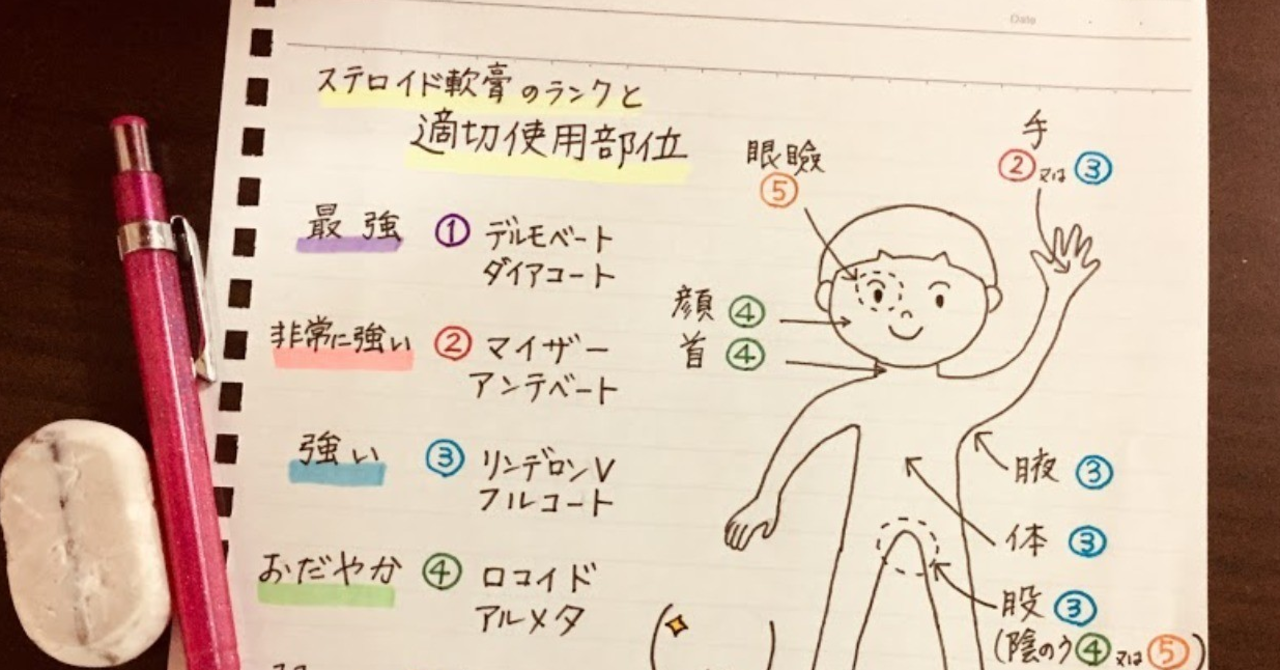 Date
ステロイド軟膏のランクと
適切使用部位
最強 ① デルモベート
ダイアコート
非常に強い ② マイザー
アンテベート
強い ③ リンデロンV
フルコート
おだやか ④ ロコイド
アルメタ
眼瞼
⑤
手
②又は③
顔 ④
首 ④
腋 ③
体 ③
股 ③
(陰のう④又は⑤)